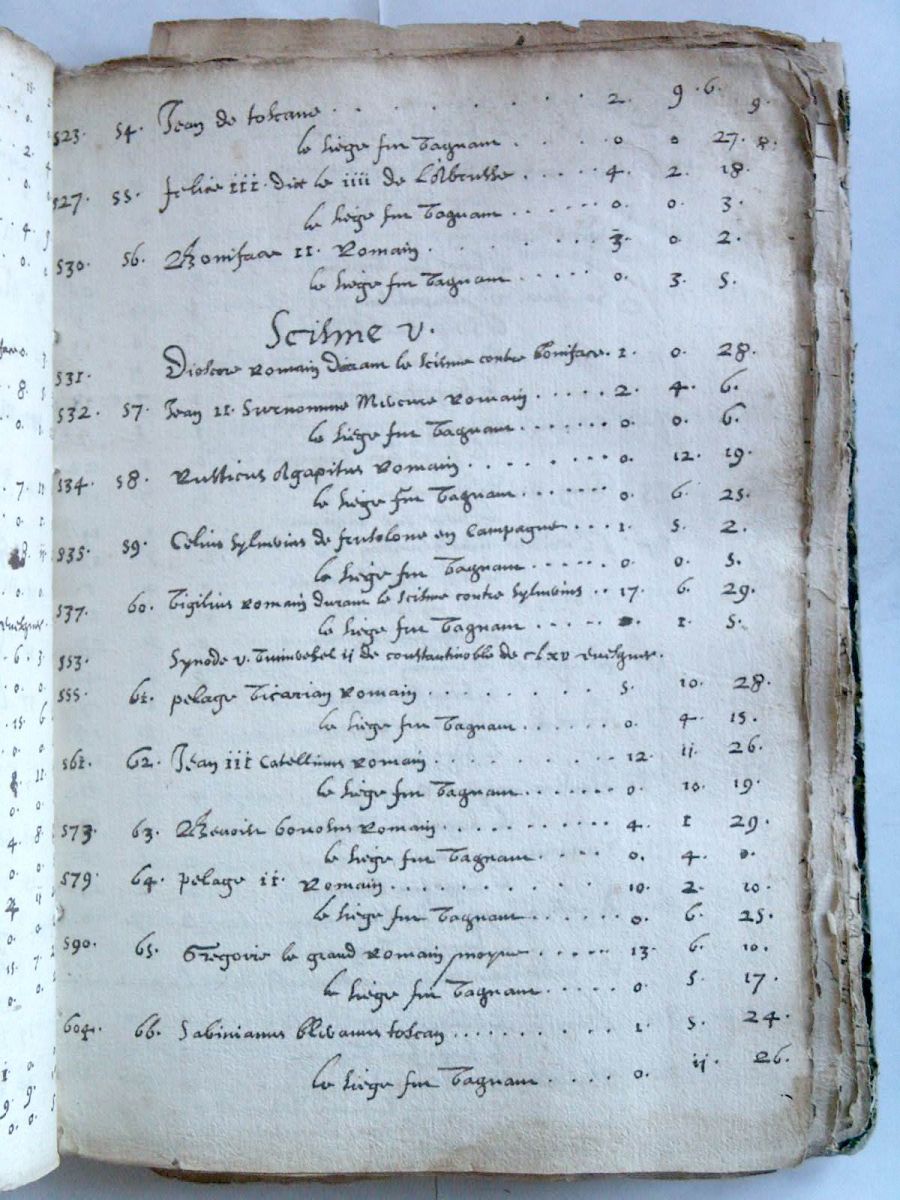 523. 54. Jean de toscane . . . . . . . . 2. 9. 6. 9.
le siege fut vaquant . . . . 0 0 27. 8.
527. 55. felice III. dit le IIII de . . . . . 4. 2. 18.
le siege fut vaquant . . . . . . 0. 0. 3.
530. 56. Boniface II. Romain . . . . . . . 3. 0. 2.
le siege fut vaquant . . . . . 0. 3. 5.
Scisme V.
531. Dioscore romain durant le scisme contre boniface. 1. 0. 28.
532. 57. Jean II. Surnomme Mercure romain . . . . 2. 4. 6.
le siege fut vaquant . . . . . . 0. 0. 6.
534. 58. Rusticus Agapitus romain . . . . . . . 0. 12. 19.
le siege fut vaquant . . . . . . 0. 6. 25.
535. 59. Celius Sylverius de en Campagne . . . 1. 5. 2.
le siege fut vaquant . . . . . . 0. 0. 5.
537. 60. Vigilius romain durant le scisme contre Sylverius . . 17. 6. 29.
le siege fut vaquant . . . . . 0. 1. 5.
553. Synode V. universel ij de constantinoble de clxv evesques.
555. 61. pelage vicarian romain . . . . . . . 5. 10. 28.
le siege fut vaquant . . . . . . 0. 4. 15.
561. 62. Jean III Catellinus romain . . . . . . . 12. 11. 26.
le siege fut vaquant . . . . . . . 0. 10. 19.
573. 63. Benoist bonosus romain . . . . . . . . . 4. 1 29.
le siege fut vaquant . . . . 0. 4. 0.
579. 64. pelage II. romain . . . . . . . . 10. 2. 10.
le siege fut vaquant . . . . . . 0. 6. 25.
590. 65. Gregoire le grand romain moyne . . . . . 13. 6. 10.
le siege fut vaquant . . . . . 0. 5. 17.
604. 66. Sabinianus toscan . . . . . . . . 1. 5. 24.
le siege fut vaquant . . . . 0. 11. 26.